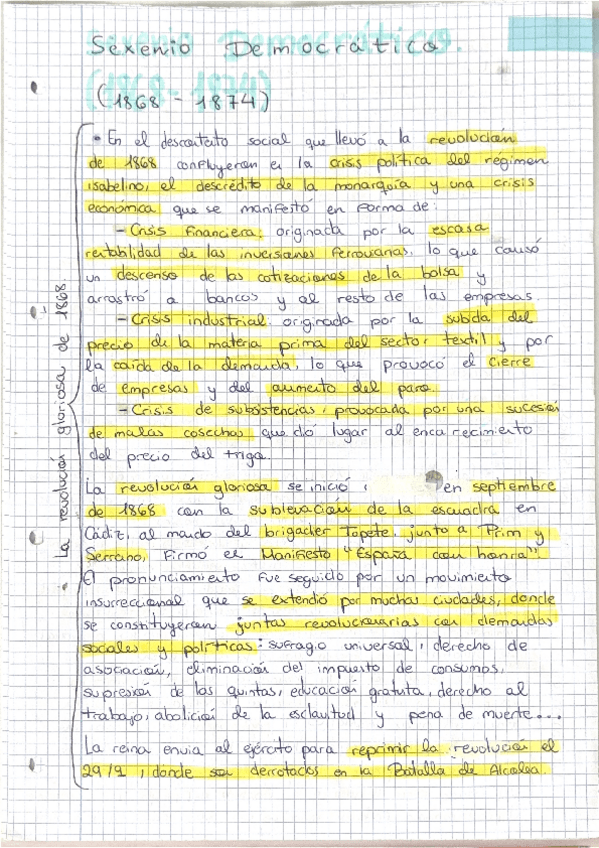 Sexenio Democrático.
(1868 - 1874)
• En el descontento social que llevó a la revolución
de 1868 confluyeron en la crisis política del régimen
isabelino, el descrédito de la monarquía y una crisis
económica que se manifestó en forma de:
- Crisis financiera: originada por la escasa
rentabilidad de las inversiones ferroviarias, lo que causó
un descenso de las cotizaciones de la bolsa y
arrastró a bancos y al resto de las empresas
- Crisis industrial: originada por la subida del
precio de la materia prima del sector textil y por
la caída de la demanda, lo que provocó el cierre
de empresas y del aumento del paro.
- Crisis de subsistencias, provocada por una sucesión
de malas cosechas que dió lugar al encarecimiento
del precio del trigo.
La revolución gloriosa de 1868.
La revolución gloriosa se inició en septiembre
de 1868 con la sublevación de la escuadra en
Cádiz, al mando del brigadier Topete, junto a Prim y
Serrano, Firmó el Manifiesto "España con honra".
El pronunciamiento fue seguido por un movimiento
insurreccional que se extendió por muchas ciudades, donde
se constituyeron juntas revolucionarias con demandas
sociales y políticas: sufragio universal, derecho de
asociación, eliminación del impuesto de consumos,
supresión de las quintas, educación gratuita, derecho al
trabajo, abolición de la esclavitud y pena de muerte...
La reina envia al ejército para reprimir la revolución el
29/9, donde son derrotados en la Batalla de Alcolea.